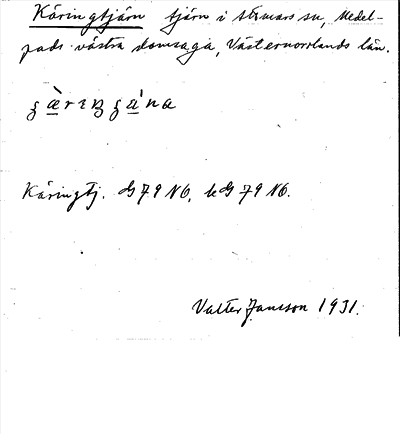 Käringtjärn tjärn i Stömars sn, Medel-
pads västra domsaga, Västernorrlands län.
Käringtj. G 79 N6, kG 79 N6.
Valter Jansson 1931.